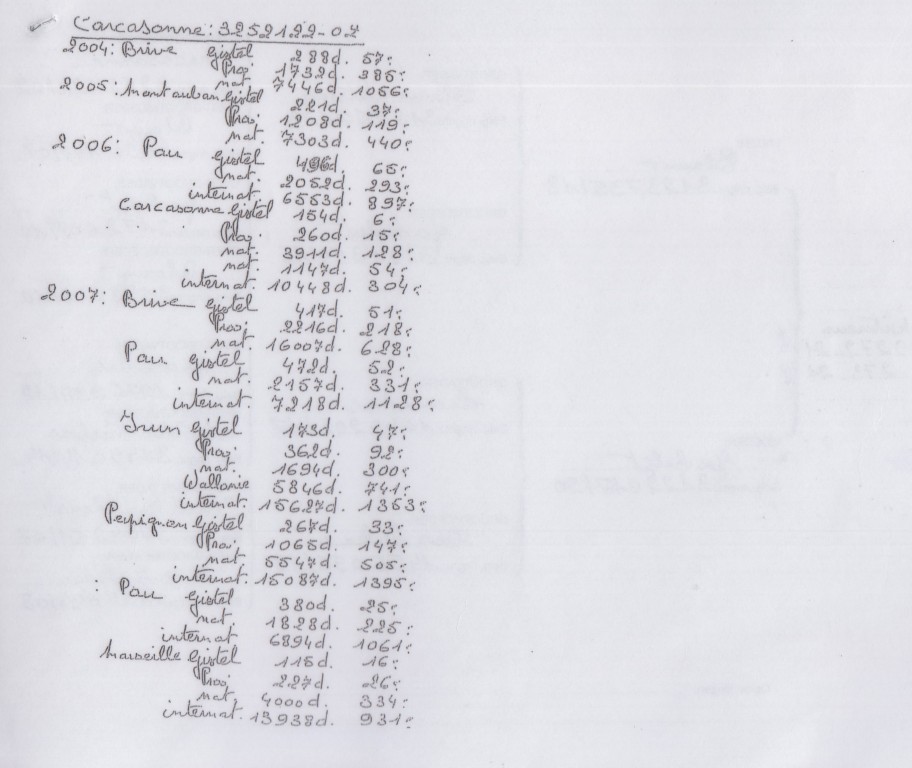 Carcasonne: 3252122-02
2004: Brive Gistel 288d. 57:
Prov. 1732d. 385:
nat. 7446d. 1056:
2005: Montauban Gistel 221d. 37:
Prov. 1208d. 119:
nat. 7303d. 440:
2006: Pau Gistel 496d. 65:
nat. 2052d. 293:
internat. 6553d. 897:
Carcasonne Gistel 154d. 6:
Prov. 260d. 15:
nat. 3911d. 128:
nat. 1147d. 54:
internat. 10448d. 304:
2007: Brive Gistel 417d. 51:
Prov. 2216d. 218:
nat. 16007d. 628:
Pau Gistel 472d. 52:
nat. 2157d. 331:
internat. 7218d. 1128:
Irun Gistel 173d. 47:
Prov. 362d. 92:
nat. 1694d. 300:
Wallonie 5846d. 741:
internat. 15627d. 1353:
Perpignan Gistel 267d. 33:
Prov. 1065d. 147:
nat. 5547d. 505:
internat. 15087d. 1395:
: Pau Gistel 380d. 25:
nat. 1828d. 225:
internat 6894d. 1061:
Marseille Gistel 115d. 16:
Prov. 227d. 26:
nat. 4000d. 334:
internat. 13938d. 931: